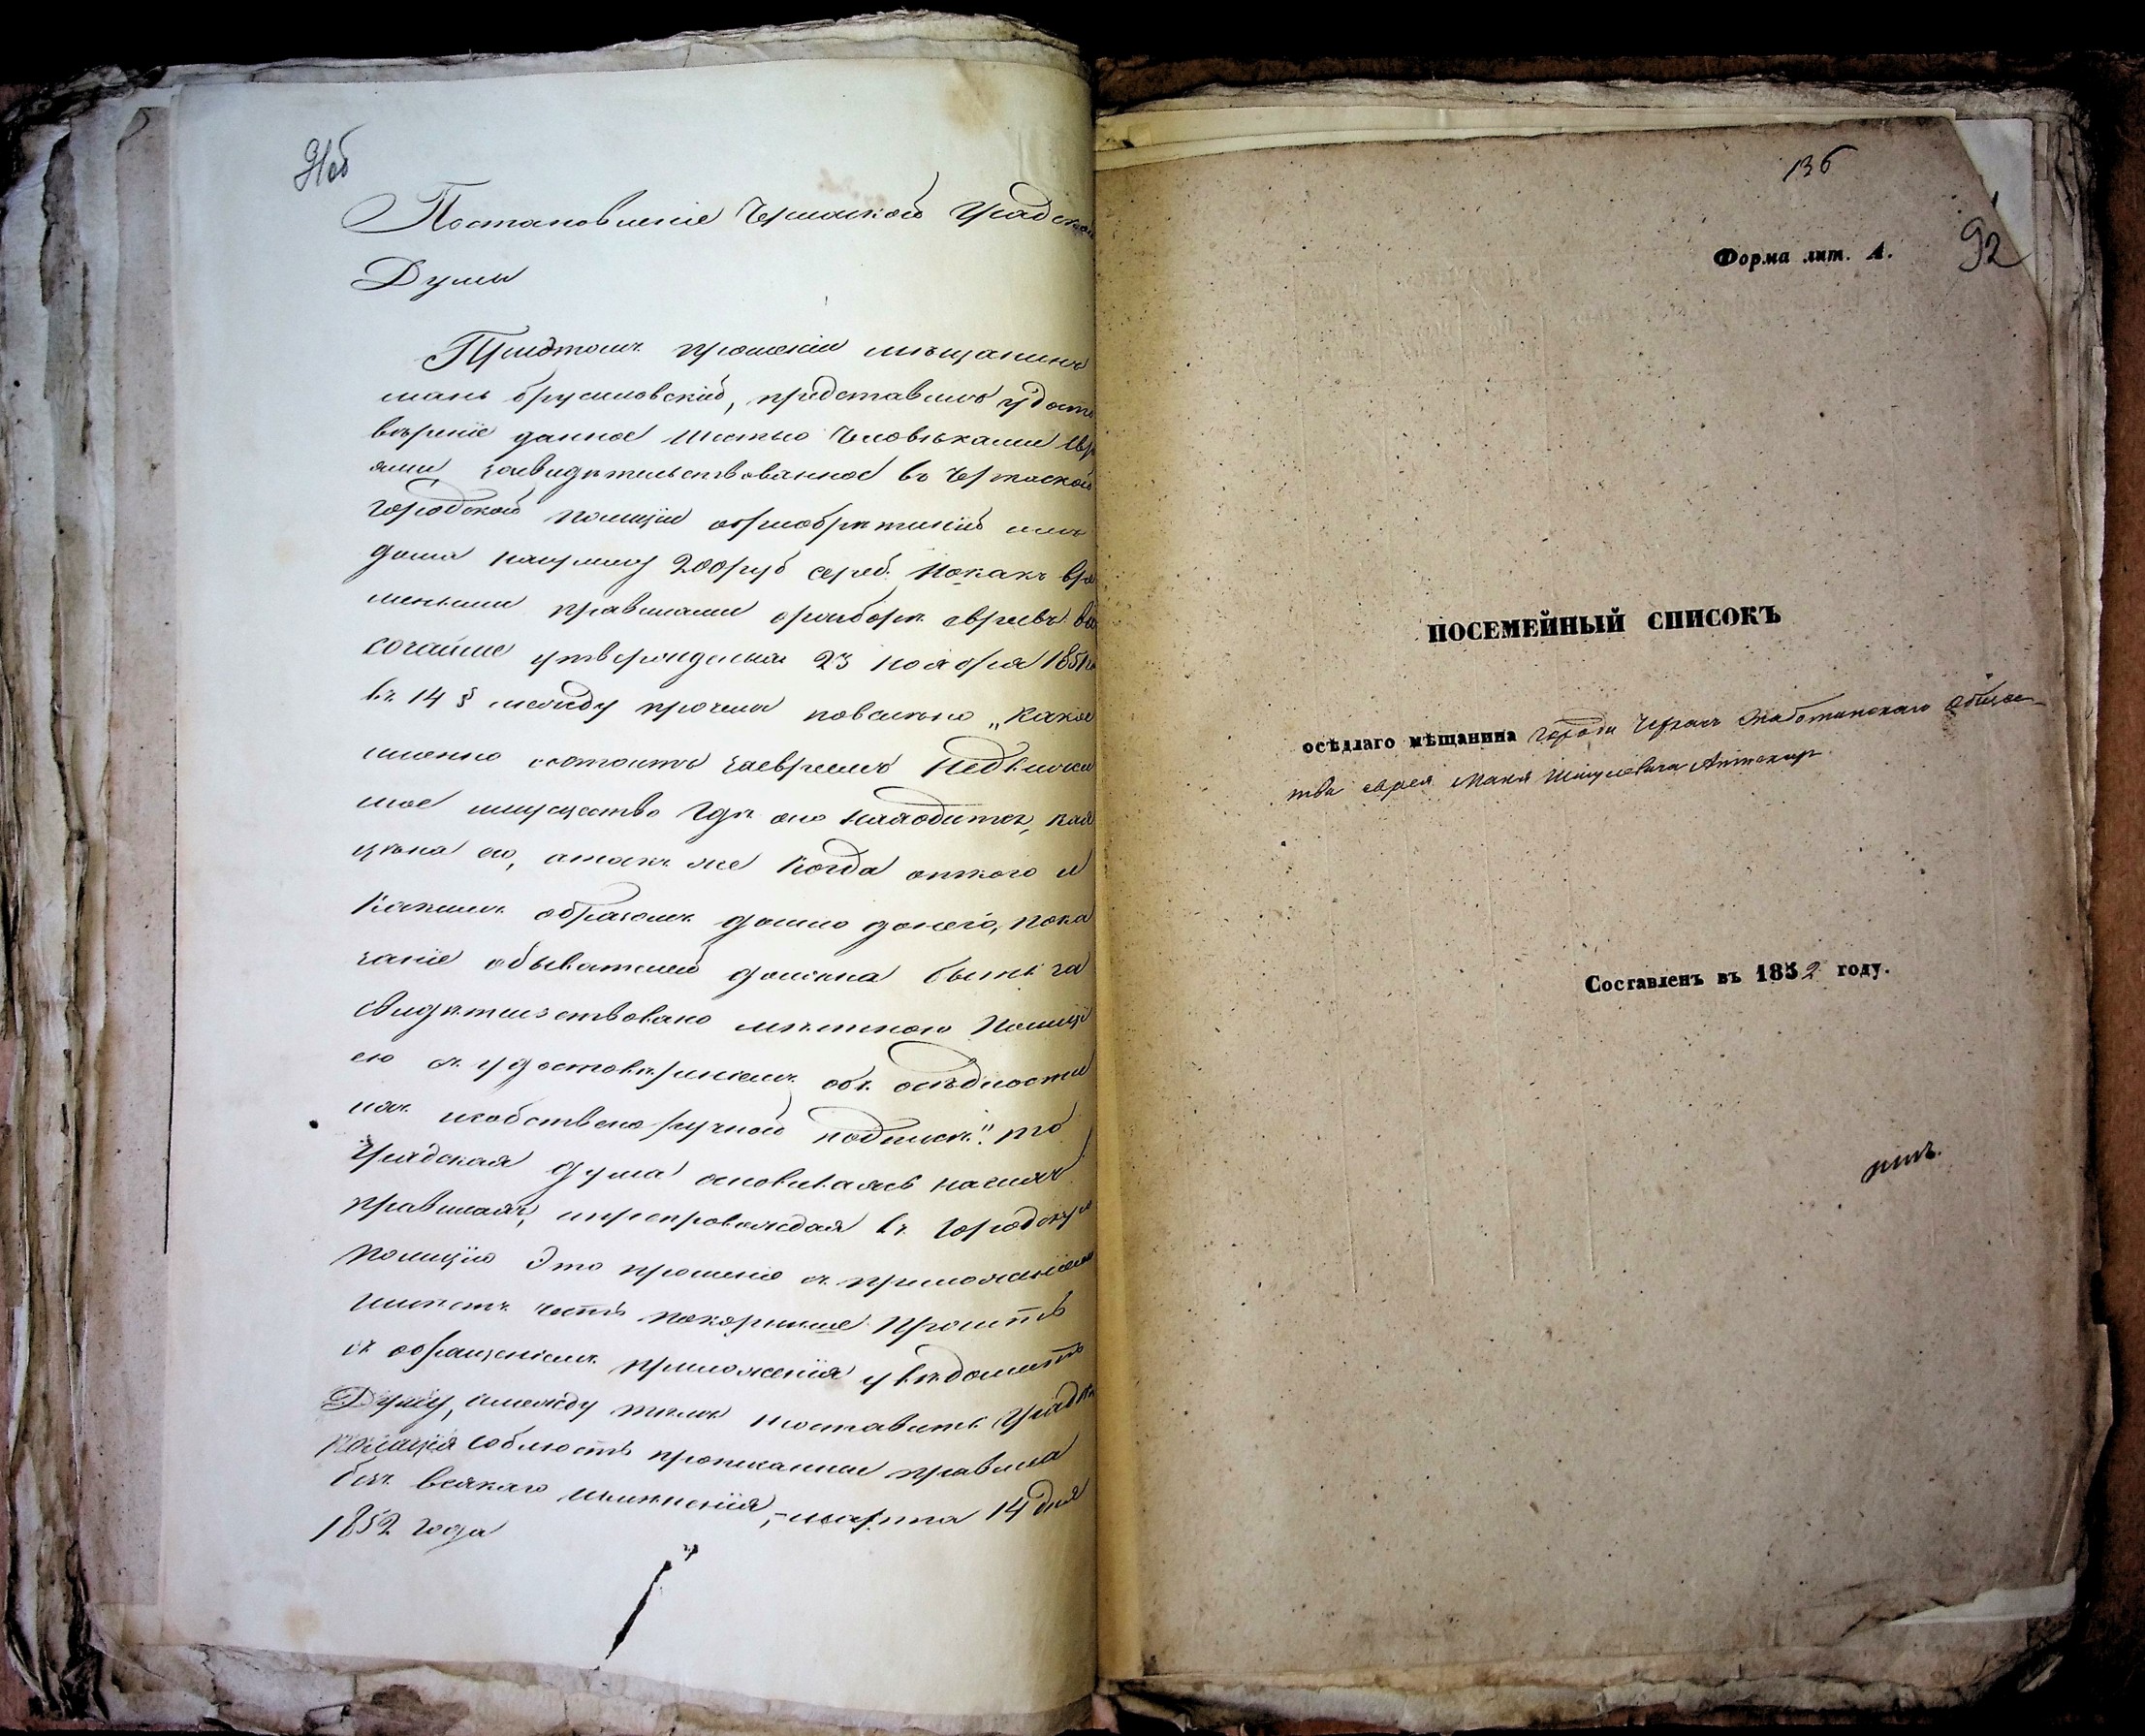 91об
Постановленіе Черкаской Градской
Думы
При этомъ прошеніи мѣщанинъ
мань Брусиловскій, представилъ удосто
вѣреніе данное шестью человѣками евре
ями, засвидѣтельствованное въ Черкаской
Городской полиціи
дома 200 руб сереб. Но какъ вре
менными правилами о разборѣ евреевъ вы
сочайше утвержденными 23 ноября 1851
въ 14 § между прочемъ повелено „Какое
именно состоитъ за евреемъ недвижи
мое имущество гдѣ оно находится, какая
цѣна ею, а такъ же когда откого и
какимъ образомъ дошло донего, пока
заніе обывателей должна быть за
свидѣтельствовано мѣстною Полиці
ею съ удостовѣреніемъ объ осѣдлости
ихъ исобственоручной подписи". то
Градская дума основываясь насихъ
правилахъ, ипрепровождая въ Городскую
полицію это прошеніе съ приложеніемъ
имѣетъ честь покорнѣше просить
съ обращеніемъ приложенія увѣдомить
Думу, амежду тѣмъ поставить Градск
полиція соблюсть прописанные правила
безъ всякаго измѣненія, - марта 14 дня
1852 года
136
92
Форма лит. А.
ПОСЕМЕЙНЫЙ СПИСОКЪ
осѣдлаго мѣщанина города Черкасъ Смоботинскаго общес
тва еврея Маня Шмулевича Аптекаря
Составленъ въ 1852 году.